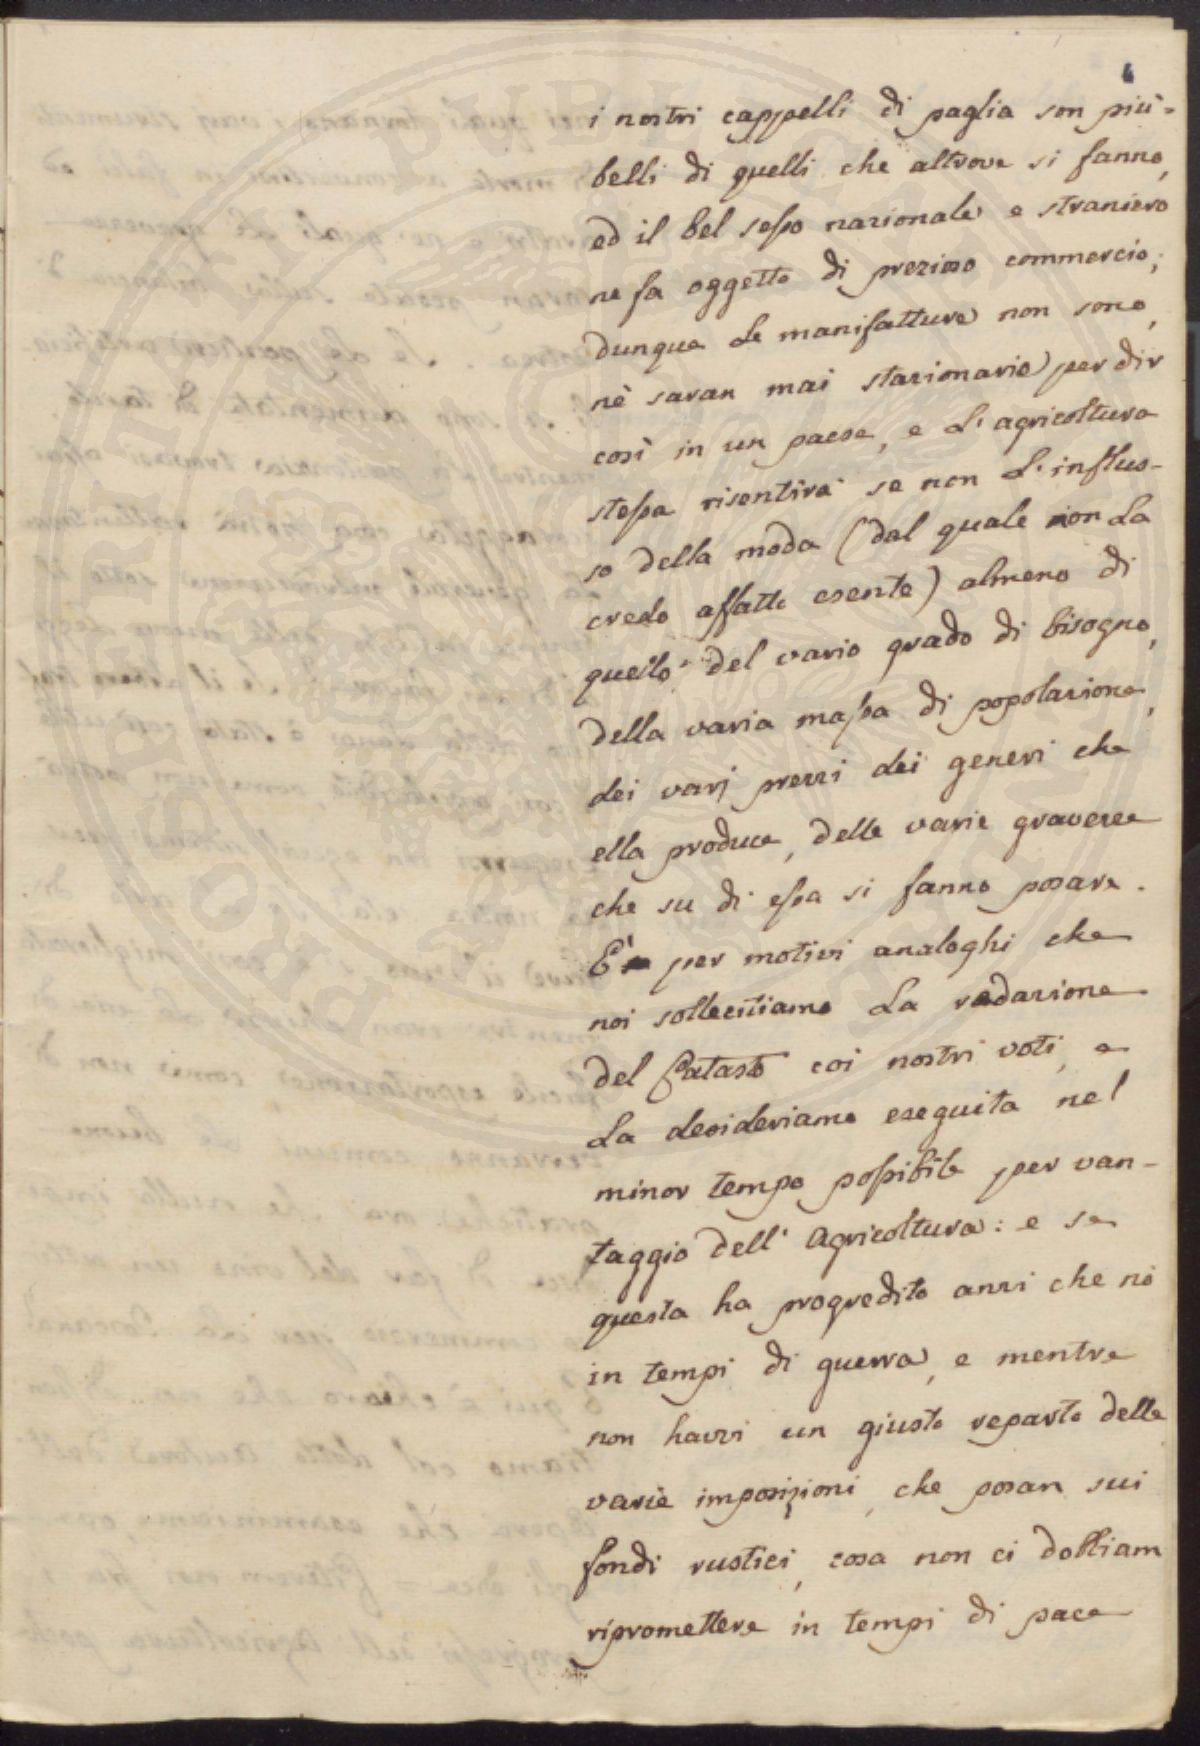 4
i nostri cappelli di paglia son più
belli di quelli che altrove si fanno,
ed il bel sesso nazionale e straniero
ne fa oggetto di prezioso commercio;
dunque le manifatture non sono,
nè saran mai stazionarie per dir
così in un paese, e l'agricoltura
stessa risentirà se non l'influs-
so della moda (dal quale non la
credo affatto esente) almeno di
quello del vario grado di bisogno,
della varia massa di popolazione,
dei varj prezzi dei generi che
ella produce, delle varie gravezze
che su di essa si fanno posare.
E' per motivi analoghi che
noi sollecitiamo la redazione
del Catasto coi nostri voti, e
la desideriamo eseguita nel
minor tempo possibile per van-
taggio dell'Agricoltura: e se
questa ha progredito anzi che nò
in tempi di guerra, e mentre
non havvi un giusto reparto delle
varie imposizioni, che posan sui
fondi rustici, cosa non ci dobbiam
ripromettere in tempi di pace